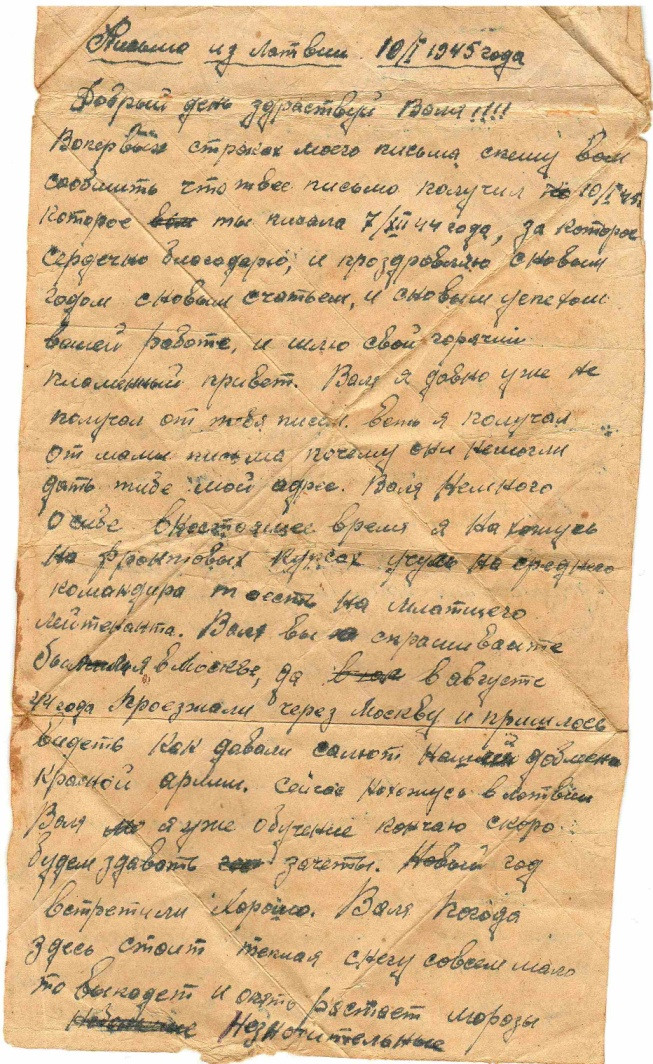 Письма из Латвии 10/I 1945 года
Добрый день здраствуй Валя!!!!
Вопервых строках моего письма спешу Вам
сообщить что твое письмо получил 10/I 45.
которое ты писала 7/XII 44 года, за которое
сердечно благодарю, и проздровляю с новым
годом с новым счатьем, и с новым успехом
вашей работе, и шлю свой горячий
пламенный привет. Валя я давно уже не
получал от тебя писем. веть я получал
от мамы письма почему они немогли
дать тибе мой адрес. Валя немного
о сибе внастоящее время я нахожусь
на фронтовых курсах учусь на среднего
командира тоесть на млатщего
лейтенанта. Валя вы спрашиваите
был я в Москве, да в августе
44 года проезжали через Москву и пришлось
видеть как давали салют нашей доблесн
красной армии. Сейчас нахожусь в латвии
Валя я уже обучение кончаю скоро
будем здавать зачеты. Новый год
встретили хорошо. Валя погода
здесь стоит теплая снегу совсем мало
то выпадет и опять растает морозы
незночительные